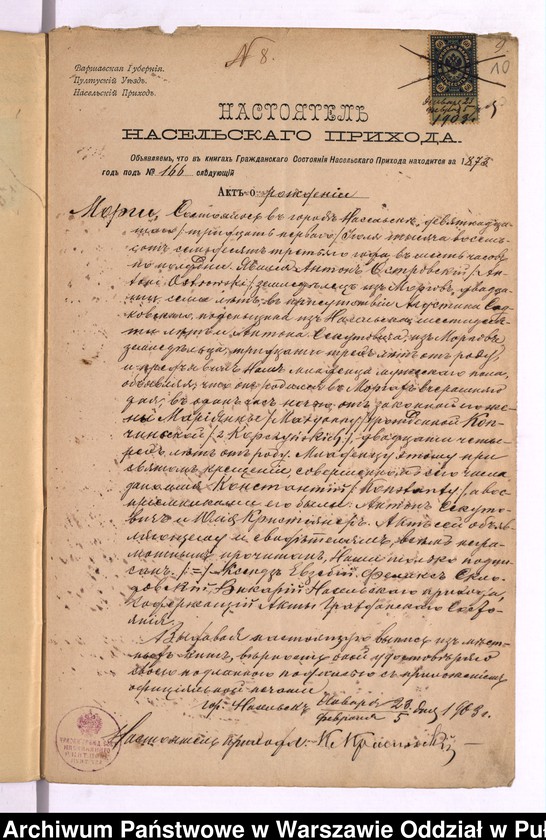 N 8.
9.
10
Варшавская Губернія.
Пултускій Уѣздъ.
Насельскій Приходъ.
НАСТОЯТЕЛЬ
НАСЕЛЬСКАГО ПРИХОДА.
Объявляемъ, что въ книгахъ Гражданскаго Состоянія Насельскаго Прихода находится за 1873
годъ подъ № 166 слѣдующій
Актъ о рожденіи
Моргы, Состоялось въ городѣ Насельскѣ, девятнадца-
таго /тридцать перваго/ Іюля тысяча восемь-
сотъ семьдесятъ третьяго года, въ шесть часовъ
по полудни. Явился Антонъ Островскій /An-
toni Ostrowski/ земледѣлецъ изъ Морговъ, двадца-
ти семи лѣтъ, въ присутствіи Августина Сад-
ковскаго, поденщика изъ Насельска, шестидеся-
ти лѣтъ и Антона Секутовича, изъ Морговъ,
земледѣльца, тридцати трехъ лѣтъ отъ роду,
и предъявилъ Намъ младенца мужескаго пола,
объявляя, что онъ родился въ Моргахъ вчерашняго
дня, въ часъ ночи, отъ законной его же-
ны Маріянны /Maryanny/ урожденной Коп-
чинской, двадцати четы-
рехъ лѣтъ отъ роду. Младенцу этому при
святомъ крещеніи совершенномъ сего числа
дано имя Константій /Konstanty/, а вос-
пріемниками его были: Антонъ Секуто-
вичъ и Юлія Кристіянеръ. Актъ сей объяв-
ляющему и свидѣтелямъ, всѣмъ негра-
мотнымъ прочитанъ, Нами только подпи-
санъ. /:=/ Ксендзъ Евгеній Феликсъ Скло-
довскій, Викарій Насельскаго прихода,
содержащій Акты Гражданскаго Состо-
янія.
Выдавая настоящую выпись изъ мѣст-
ныхъ книгъ, вѣрность оной удостовѣряю
своею подписью съ приложеніемъ
официальной печати.
гор. Насельскъ Января 23/Февраля 5 дня 1903 г.
Настоятель прихода: К. Красинскій
Archiwum Państwowe w Warszawie Oddział w Pu